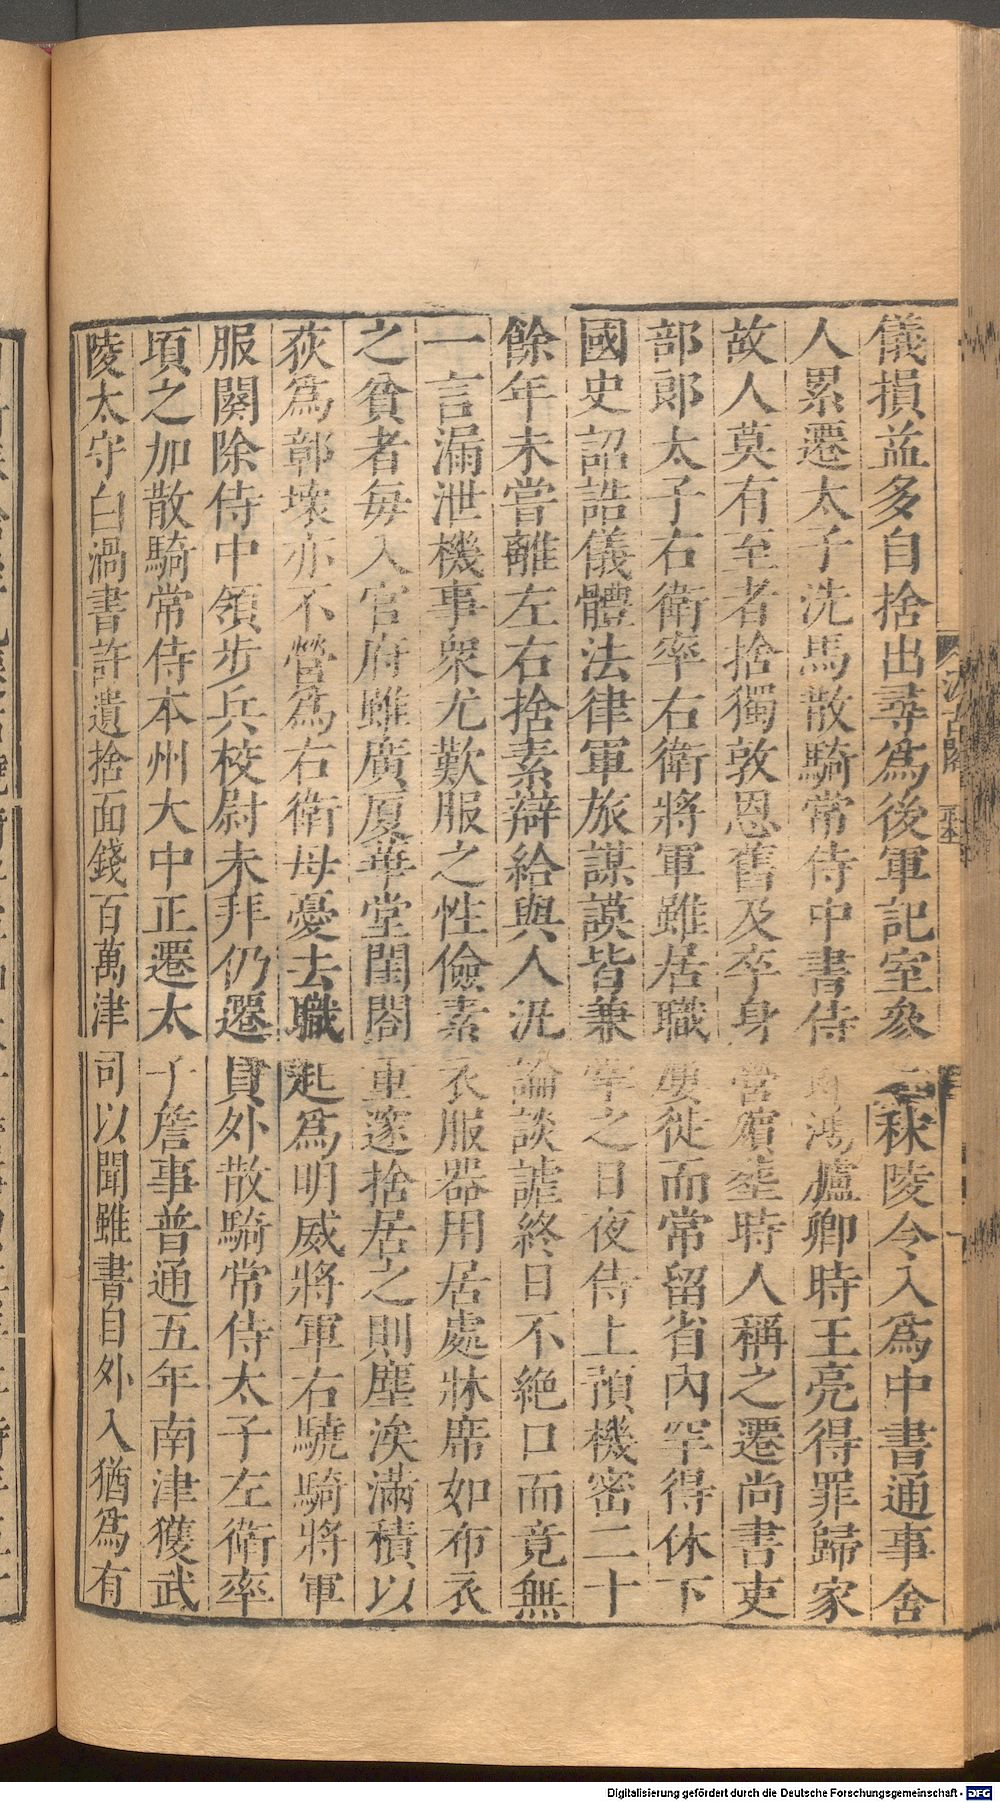 儀損益多自捨出尋爲後軍記室參秣陵令入爲中書通事舍
人累遷太子洗馬散騎常侍中書侍鴻臚卿時王亮得罪歸家
故人莫有至者捨獨敦恩舊及卒身營殯塟時人稱之遷尚書吏
部郎太子右衛率右衛將軍雖居職屢徙而常留省內罕得休下
國史詔誥儀體法律軍旅謀謨皆兼掌之日夜侍上預機密二十
餘年未嘗離左右捨素辯給與人汎論談謔終日不絶口而竟無
一言漏泄機事衆尤歎服之性儉素衣服器用居處牀席如布衣
之貧者每入官府雖廣厦華堂閨閤重邃捨居之則塵埃滿積以
荻爲鄣壞亦不營爲右衛母憂去職起爲明威將軍右驍騎將軍
服闋除侍中領步兵校尉未拜仍遷員外散騎常侍太子左衛率
頃之加散騎常侍本州大中正遷太子詹事普通五年南津獲武
陵太守白渦書許遺捨面錢百萬津司以聞雖書自外入猶爲有
Digitalisierung gefördert durch die Deutsche Forschungsgemeinschaft - DFG